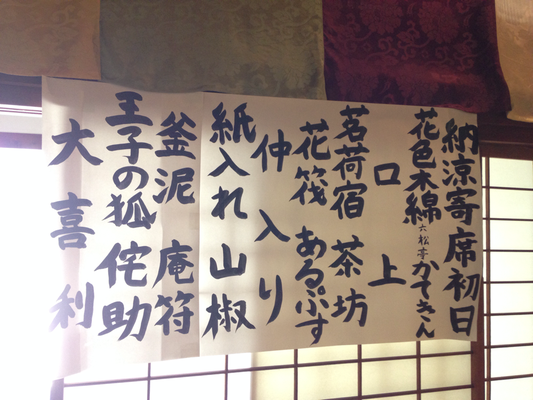 納涼寄席初日
花色木綿 六松亭 かてきん
口上
茗荷宿 茶坊
花筏 あるぷす
仲入り
紙入れ 山椒
釜泥 庵符
王子の狐 侘助
大喜利